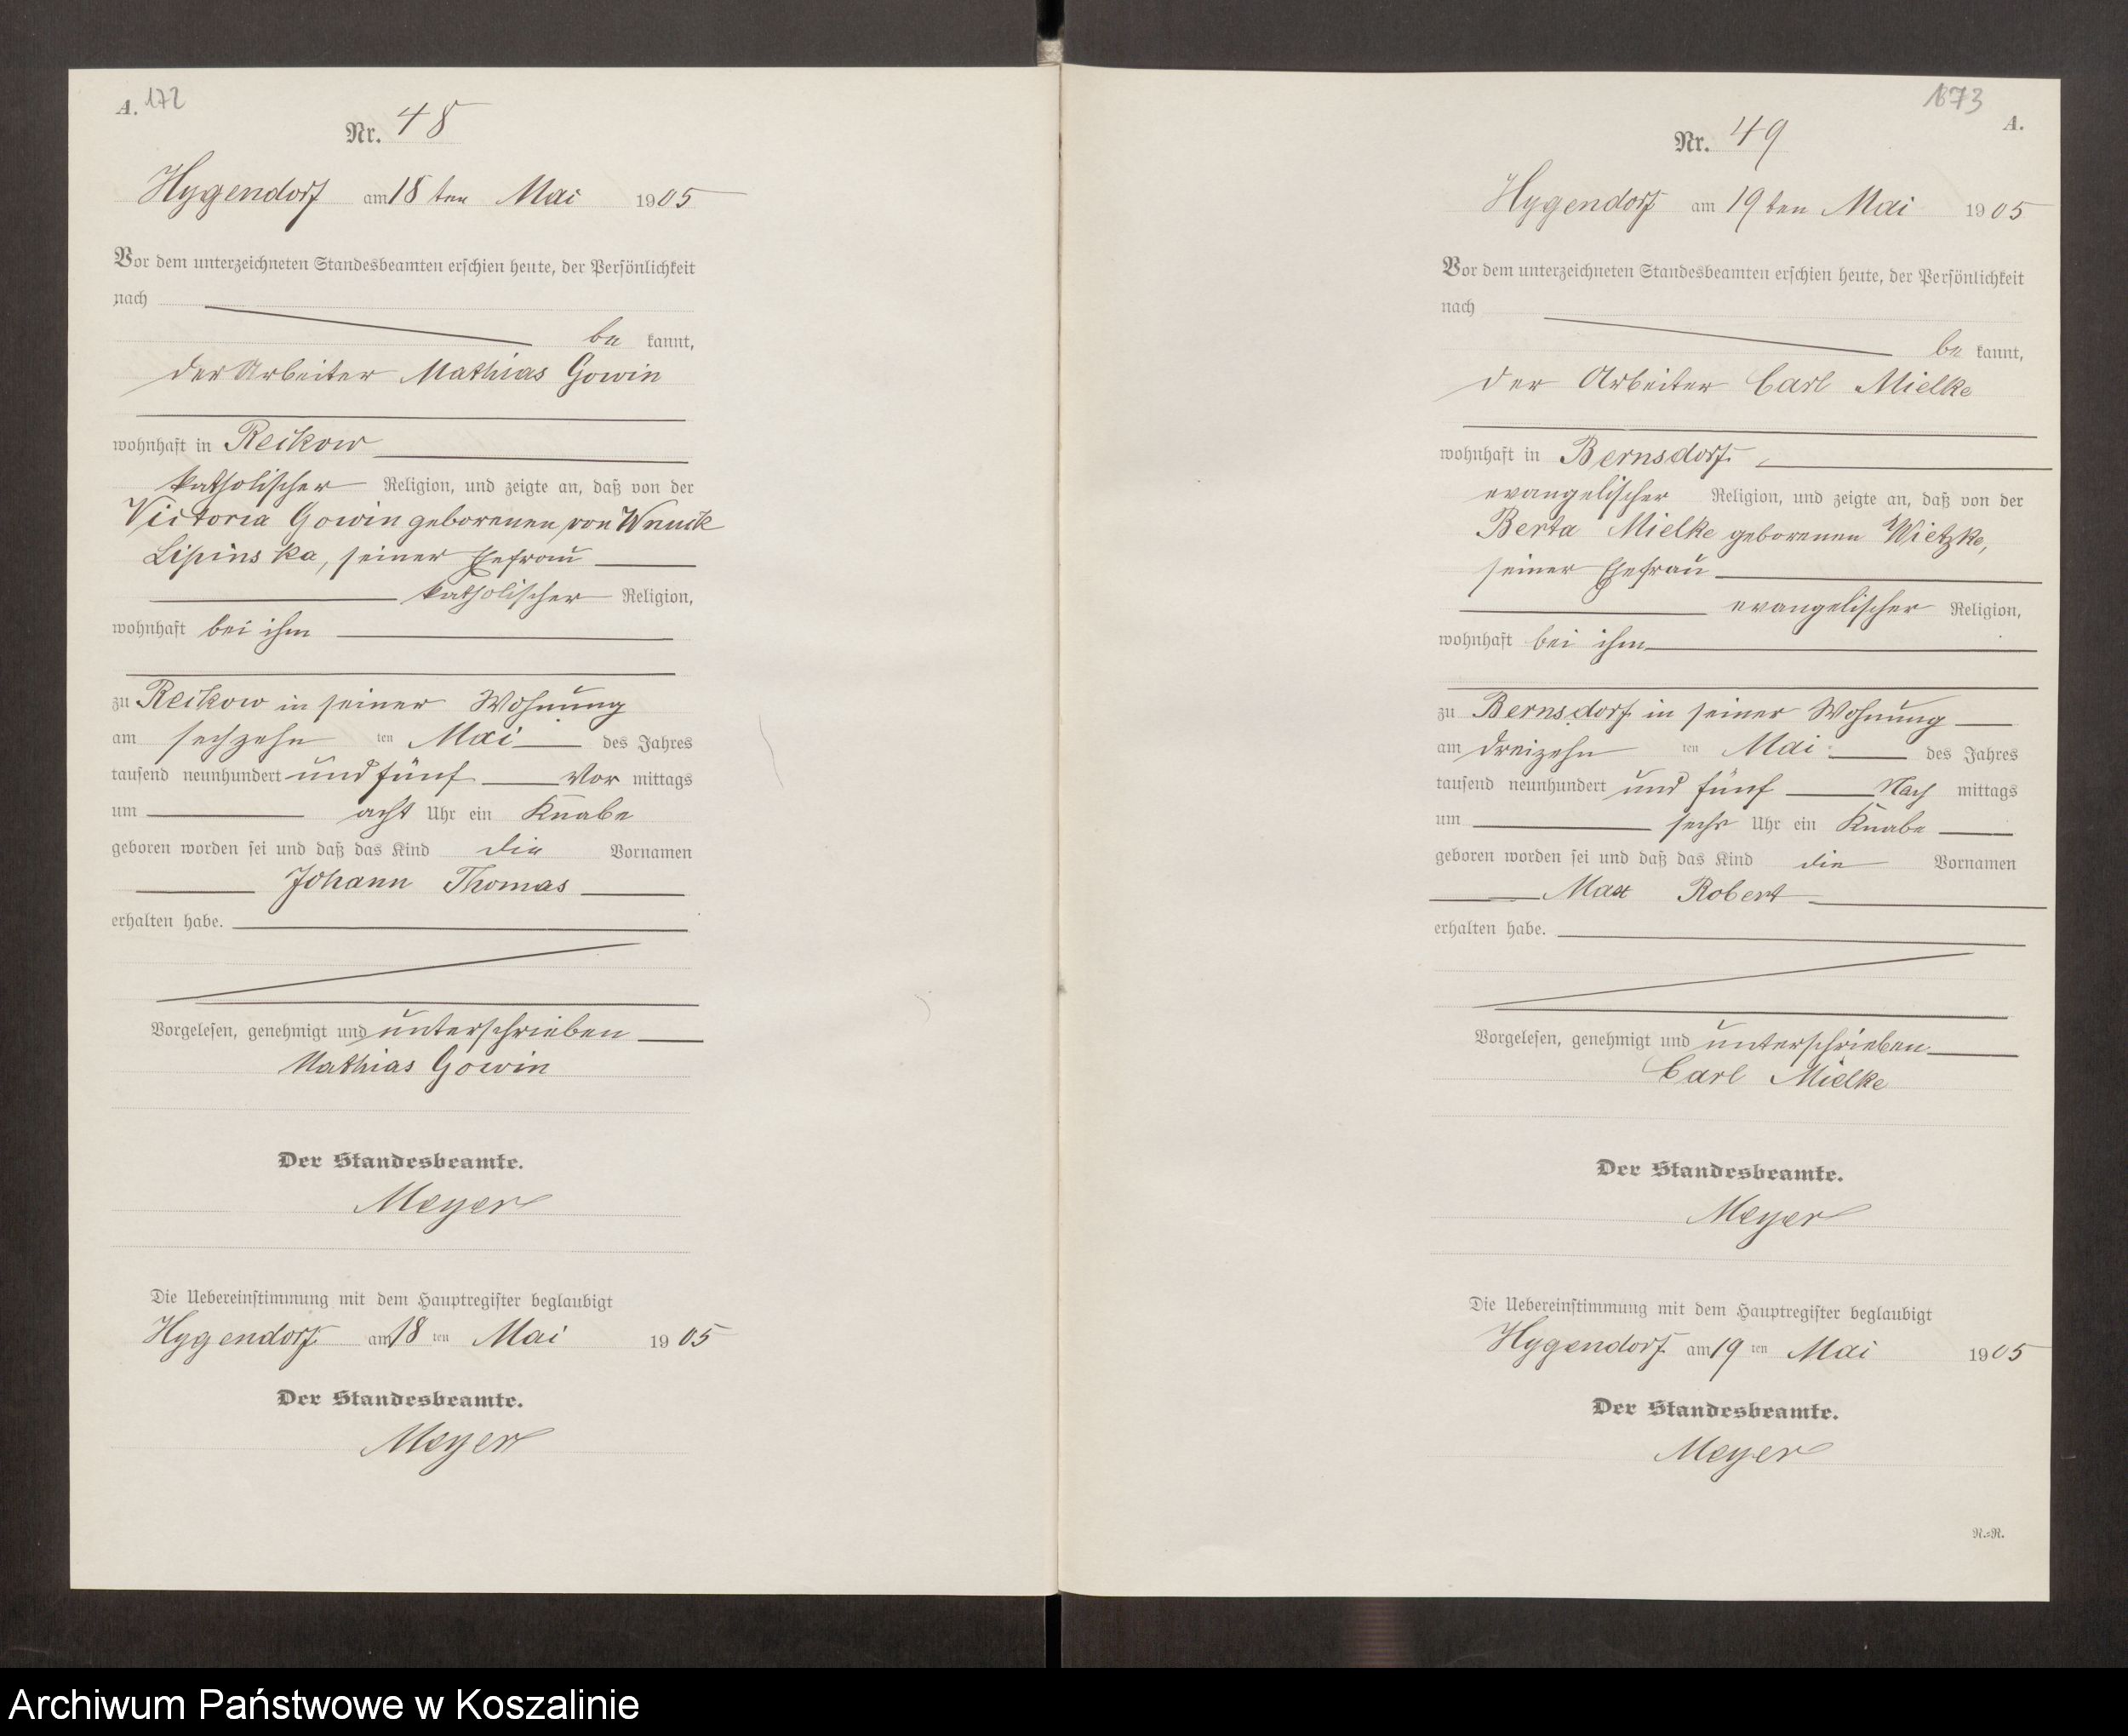 A. 172
Nr. 48
Hygendorf am 18 ten Mai 1905
Vor dem unterzeichneten Standesbeamten erschien heute, der Persönlichkeit
nach
be kannt,
der Arbeiter Mathias Gowin
wohnhaft in Reikow
katholischer Religion, und zeigte an, daß von der
Victoria Gowin geborenen von Wnuck
Lipinska, seiner Ehefrau
katholischer Religion,
wohnhaft bei ihm
zu Reikow in seiner Wohnung
am sechzehn ten Mai des Jahres
tausend neunhundert und fünf Vor mittags
um acht Uhr ein Knabe
geboren worden sei und daß das Kind die Vornamen
Johann Thomas
erhalten habe.
Vorgelesen, genehmigt und unterschrieben
Mathias Gowin
Der Standesbeamte.
Meyer
Die Uebereinstimmung mit dem Hauptregister beglaubigt
Hygendorf am 18 ten Mai 1905
Der Standesbeamte.
Meyer
173
A.
Nr. 49
Hygendorf am 19 ten Mai 1905
Vor dem unterzeichneten Standesbeamten erschien heute, der Persönlichkeit
nach
be kannt,
der Arbeiter Carl Mielke
wohnhaft in Bernsdorf
evangelischer Religion, und zeigte an, daß von der
Berta Mielke geborenen Wietzke,
seiner Ehefrau
evangelischer Religion,
wohnhaft bei ihm
zu Bernsdorf in seiner Wohnung
am dreizehn ten Mai des Jahres
tausend neunhundert und fünf Nach mittags
um sechs Uhr ein Knabe
geboren worden sei und daß das Kind die Vornamen
Max Robert
erhalten habe.
Vorgelesen, genehmigt und unterschrieben
Carl Mielke
Der Standesbeamte.
Meyer
Die Uebereinstimmung mit dem Hauptregister beglaubigt
Hygendorf am 19 ten Mai 1905
Der Standesbeamte.
Meyer
R.=R.
Archiwum Państwowe w Koszalinie